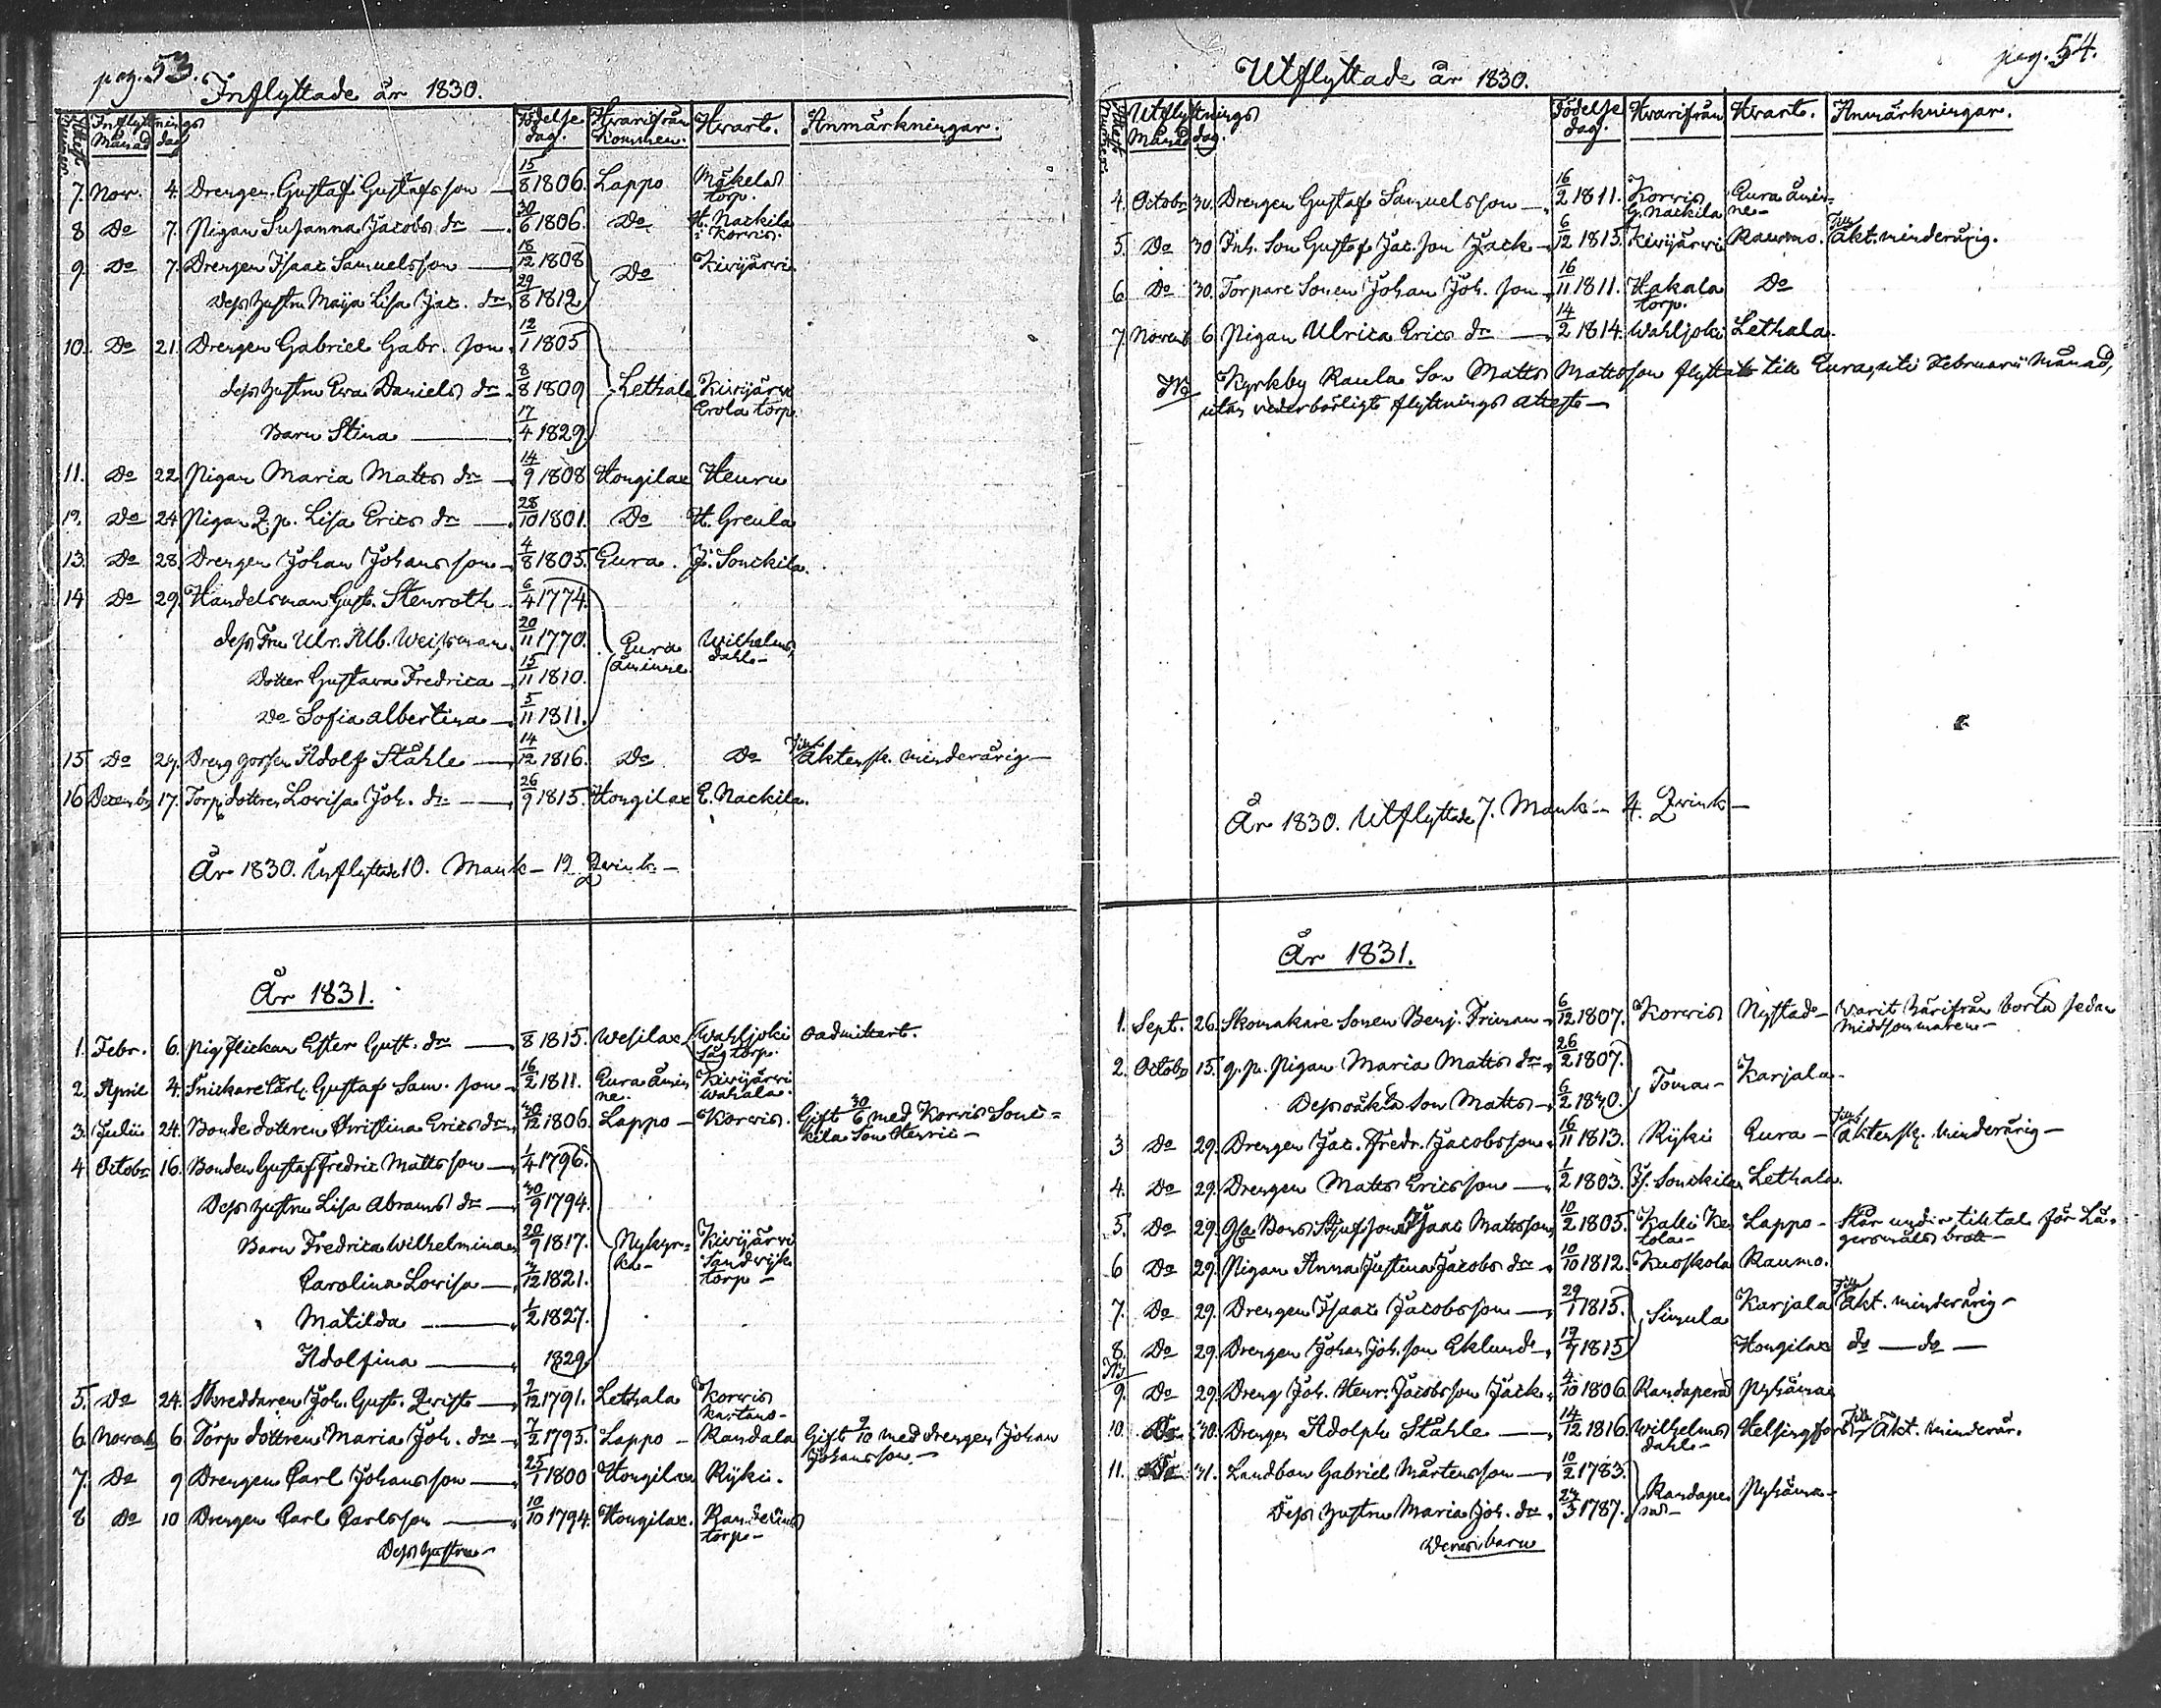 pag. 53.
Inflyttade år 1830.
Inflyttnings Månad dag Födelse dag. Hvarifrån kommen. Hvart. Anmärkningar.
7. Nov. 4. Drengen Gustaf Gustafsson — 15/8 1806. Lappo Mäkelä torp.
8 Do 7. Pigan Susanna Jacobs dr — 30/6 1806. Do H. Nackila i Korvis.
9. Do 7. Drengen Isaac Samuelsson — 15/12 1808 Do Kivijärvi
Dess hustru Maija Lisa Jac. dr 29/8 1812
10. Do 21. Drengen Gabriel Gabr. son 12/1 1805
dess hustru Eva Daniels dr 8/8 1809 Lethala Kivijärvi
Erola torp.
Barn Stina — 17/4 1829
11. Do 22 Pigan Maria Matts dr — 14/9 1808 Hongilax Heuru
12. Do 24 Pigan Q. p. Lisa Erics dr — 28/10 1801. Do H. Greula
13. Do 28. Drengen Johan Johansson 4/8 1805. Eura. J. Sonckila.
14 Do 29. Handelsman Gust. Stenroth 6/4 1774.
dess Fru Ulr. Alb. Weissman. 20/11 1770. Eura Wilhelms
åminne. dahl —
Dotter Gustava Fredrica 15/11 1810.
Do Sofia Albertina — 5/11 1811.
15 Do 29. Dreng gossen Adolf Ståhle — 14/12 1816. Do Do Till äktensk. minderårig —
16 Decemb. 17. Torp. dottren Lovisa Joh. dr — 26/9 1815. Hongilax E. Nackila.
År 1830. Inflyttade 10. Mank — 12 Qvink. —
År 1831.
1. Febr. 6. Pig flickan Ester Gust. dr — /8 1815. Wesilax Wahljoki Såg torp. oadmittert.
2. April 4. Snickare Lärl. Gustaf Sam. son 16/2 1811. Eura åmin ne. Kivijärvi Wahala.
3. Julii 24. Bonde dottren Christina Erics dr 30/12 1806. Lappo — Korvis. Gift 30/6 med Korvis Sonc=
kila Son Henric —
4 Octobr 16. Bonden Gustaf Fredric Mattsson — 1/4 1796.
Dess hustru Lisa Abrams dr — 30/9 1794.
Barn Fredrica Wilhelmina 20/9 1817. Nykyr= Kivijärvi
ka — Sandvijk torp —
Carolina Lovisa — /12 1821.
Matilda — 1/2 1827.
Adolfina — 1829
5. Do 24. Skreddaren Joh. Gust. Qvist — 2/12 1791. Lethala Korvis kartano —
6. Novemb. 6. Torp dottren Maria Joh. dr — 7/2 1795. Lappo — Randala Gift 2/10 med drengen Johan
Johansson —
7. Do 9 Drengen Carl Johansson — 25/1 1800 Hongilax Rijki.
8 Do 10 Drengen Carl Carlsson — 10/10 1794. Hongilax. torp —
Dess hustru —
pag. 54.
Utflyttade år 1830.
Utflyttnings Månad dag. Födelse dag. Hvarifrån Hvart. Anmärkningar.
4. Octobr 30. Drengen Gustaf Samuelsson — 16/2 1811. Korvis G. Nackila Eura åmin= ne —
5. Do 30 Inh. Son Gustaf Jac. son Jack 6/12 1815. Kivijärvi Raumo. Till Äkt. minderårig.
6 Do 30. Torpare Sonen Johan Joh. son 16/11 1811. Hakala torp. Do
7. Novemb 6. Pigan Ulrica Erics dr — 14/2 1814. Wahljoki Lethala.
NB Kyrkby Raula Son Matts Mattsson flyttat till Eura uti Februarii Månad,
utan vederbörligt flyttnings attest —
År 1830. Utflyttade 7. Mank — 4. Qvink —
År 1831.
1. Sept. 26. Skomakare Sonen Benj. Friman — 6/12 1807. Korvis Nystad — Warit härifrån borta sedan
Middsommaren —
2. Octobr 15. q. p. Pigan Maria Matts dr 26/2 1807. Toma — Karjala —
Dess oäkta Son Matts — 6/2 1830.
3 Do 29. Drengen Jac. Fredr. Jacobsson 16/11 1813. Rijki Eura — Till äktensk. minderårig —
4. Do 29. Drengen Matts Ericsson — 1/2 1803. J. Sonckila Lethala.
5. Do 29. Gla Bons Stjufson Isaac Mattsson 10/2 1805. Kalli Ke tola — Lappo — Står under tiltal för Lä=
gersmåls brott —
6 Do 29. Pigan Anna Justina Jacobs dr 10/10 1812. Kuoskola Raumo.
7. Do 29. Drengen Isaac Jacobsson — 29/1 1815. Simula Karjala Till Äkt. minderårig —
8. Do 29. Drengen Johan Joh. son Eklund — 17/7 1815 Hongilax do — do —
NB
9. Do 29. Dreng Joh. Henr. Jacobsson Jack 4/10 1806 Randaperä Pyhämaa
10. Do 30. Drengen Adolph Ståhle — 14/12 1816 Wilhelms dahl — Helsingfors Till Äkt. minderår.
11. Do 31. Landbon Gabriel Mårtensson — 10/2 1783. Randape rä — Pyhämaa —
Dess hustru Maria Joh. dr. /3 1787.
Deras barn